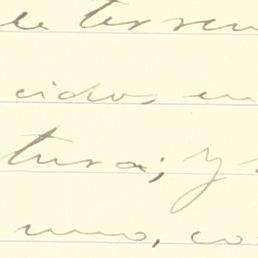 de terren
cidos, en
tura; y
uno, co